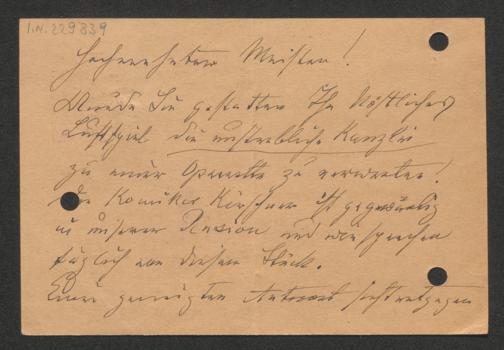 I.N. 229839
Hochverehrter Meister!
Würden Sie gestatten Ihr köstliches
Lustspiel die unsterbliche Kanzlei
zu einer Operette zu verwerten!
Der Komiker Kirschner ist gegenwärtig
in unserer Pension und wir sprechen
täglich von diesem Stück.
Einer geneigten Antwort